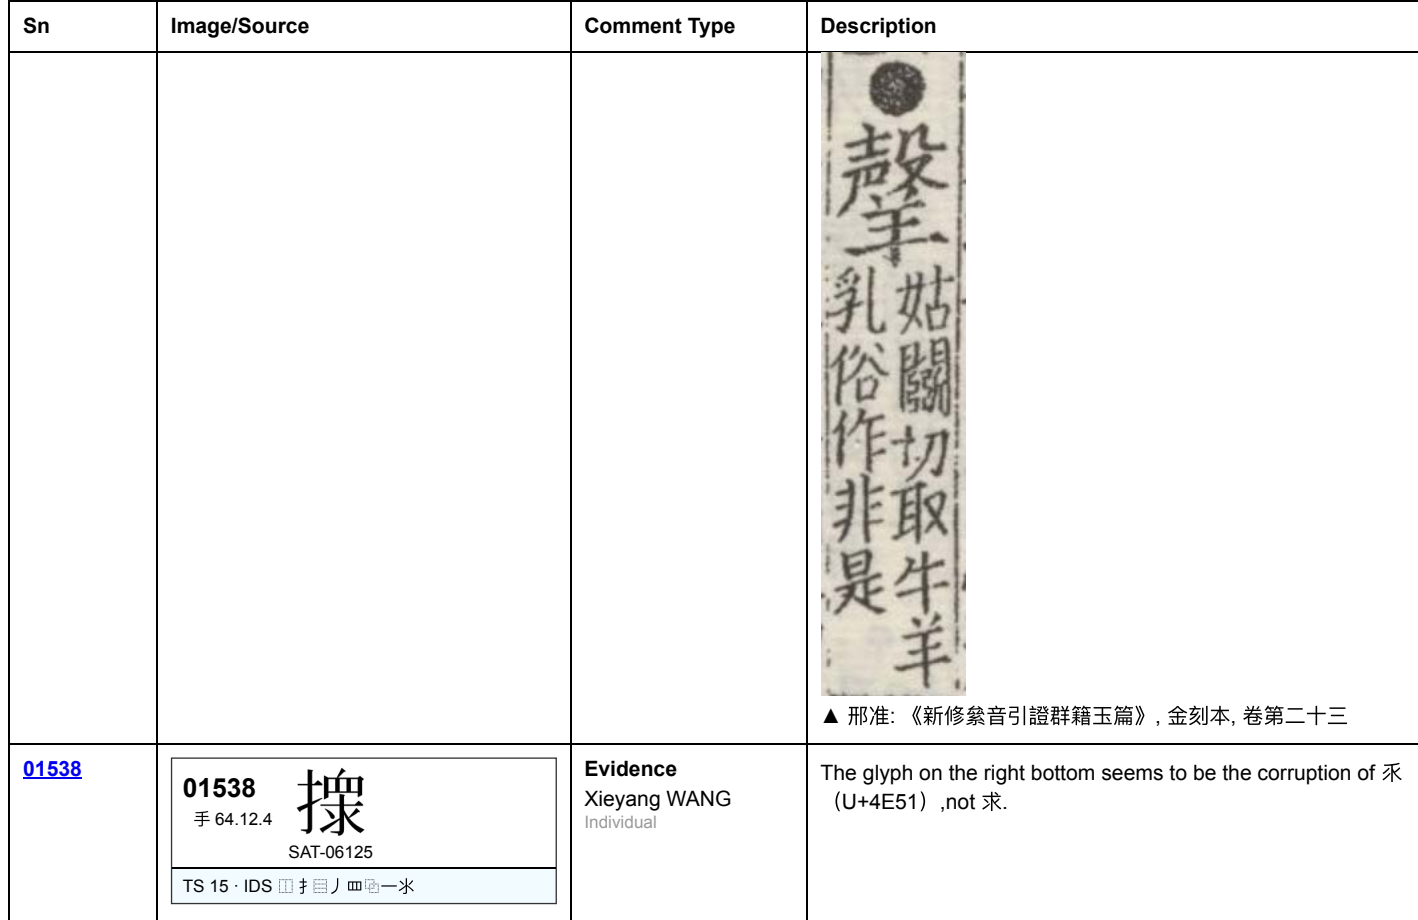 Sn Image/Source Comment Type Description
姑關切取牛羊
乳俗作非是
▲ 邢准: 《新修絫音引證群籍玉篇》, 金刻本, 卷第二十三
01538
01538
手 64.12.4
SAT-06125
TS 15 · IDS ⿰扌⿳丿罒⿻一氺
Evidence
Xieyang WANG
Individual
The glyph on the right bottom seems to be the corruption of 乑
（U+4E51）,not 求.